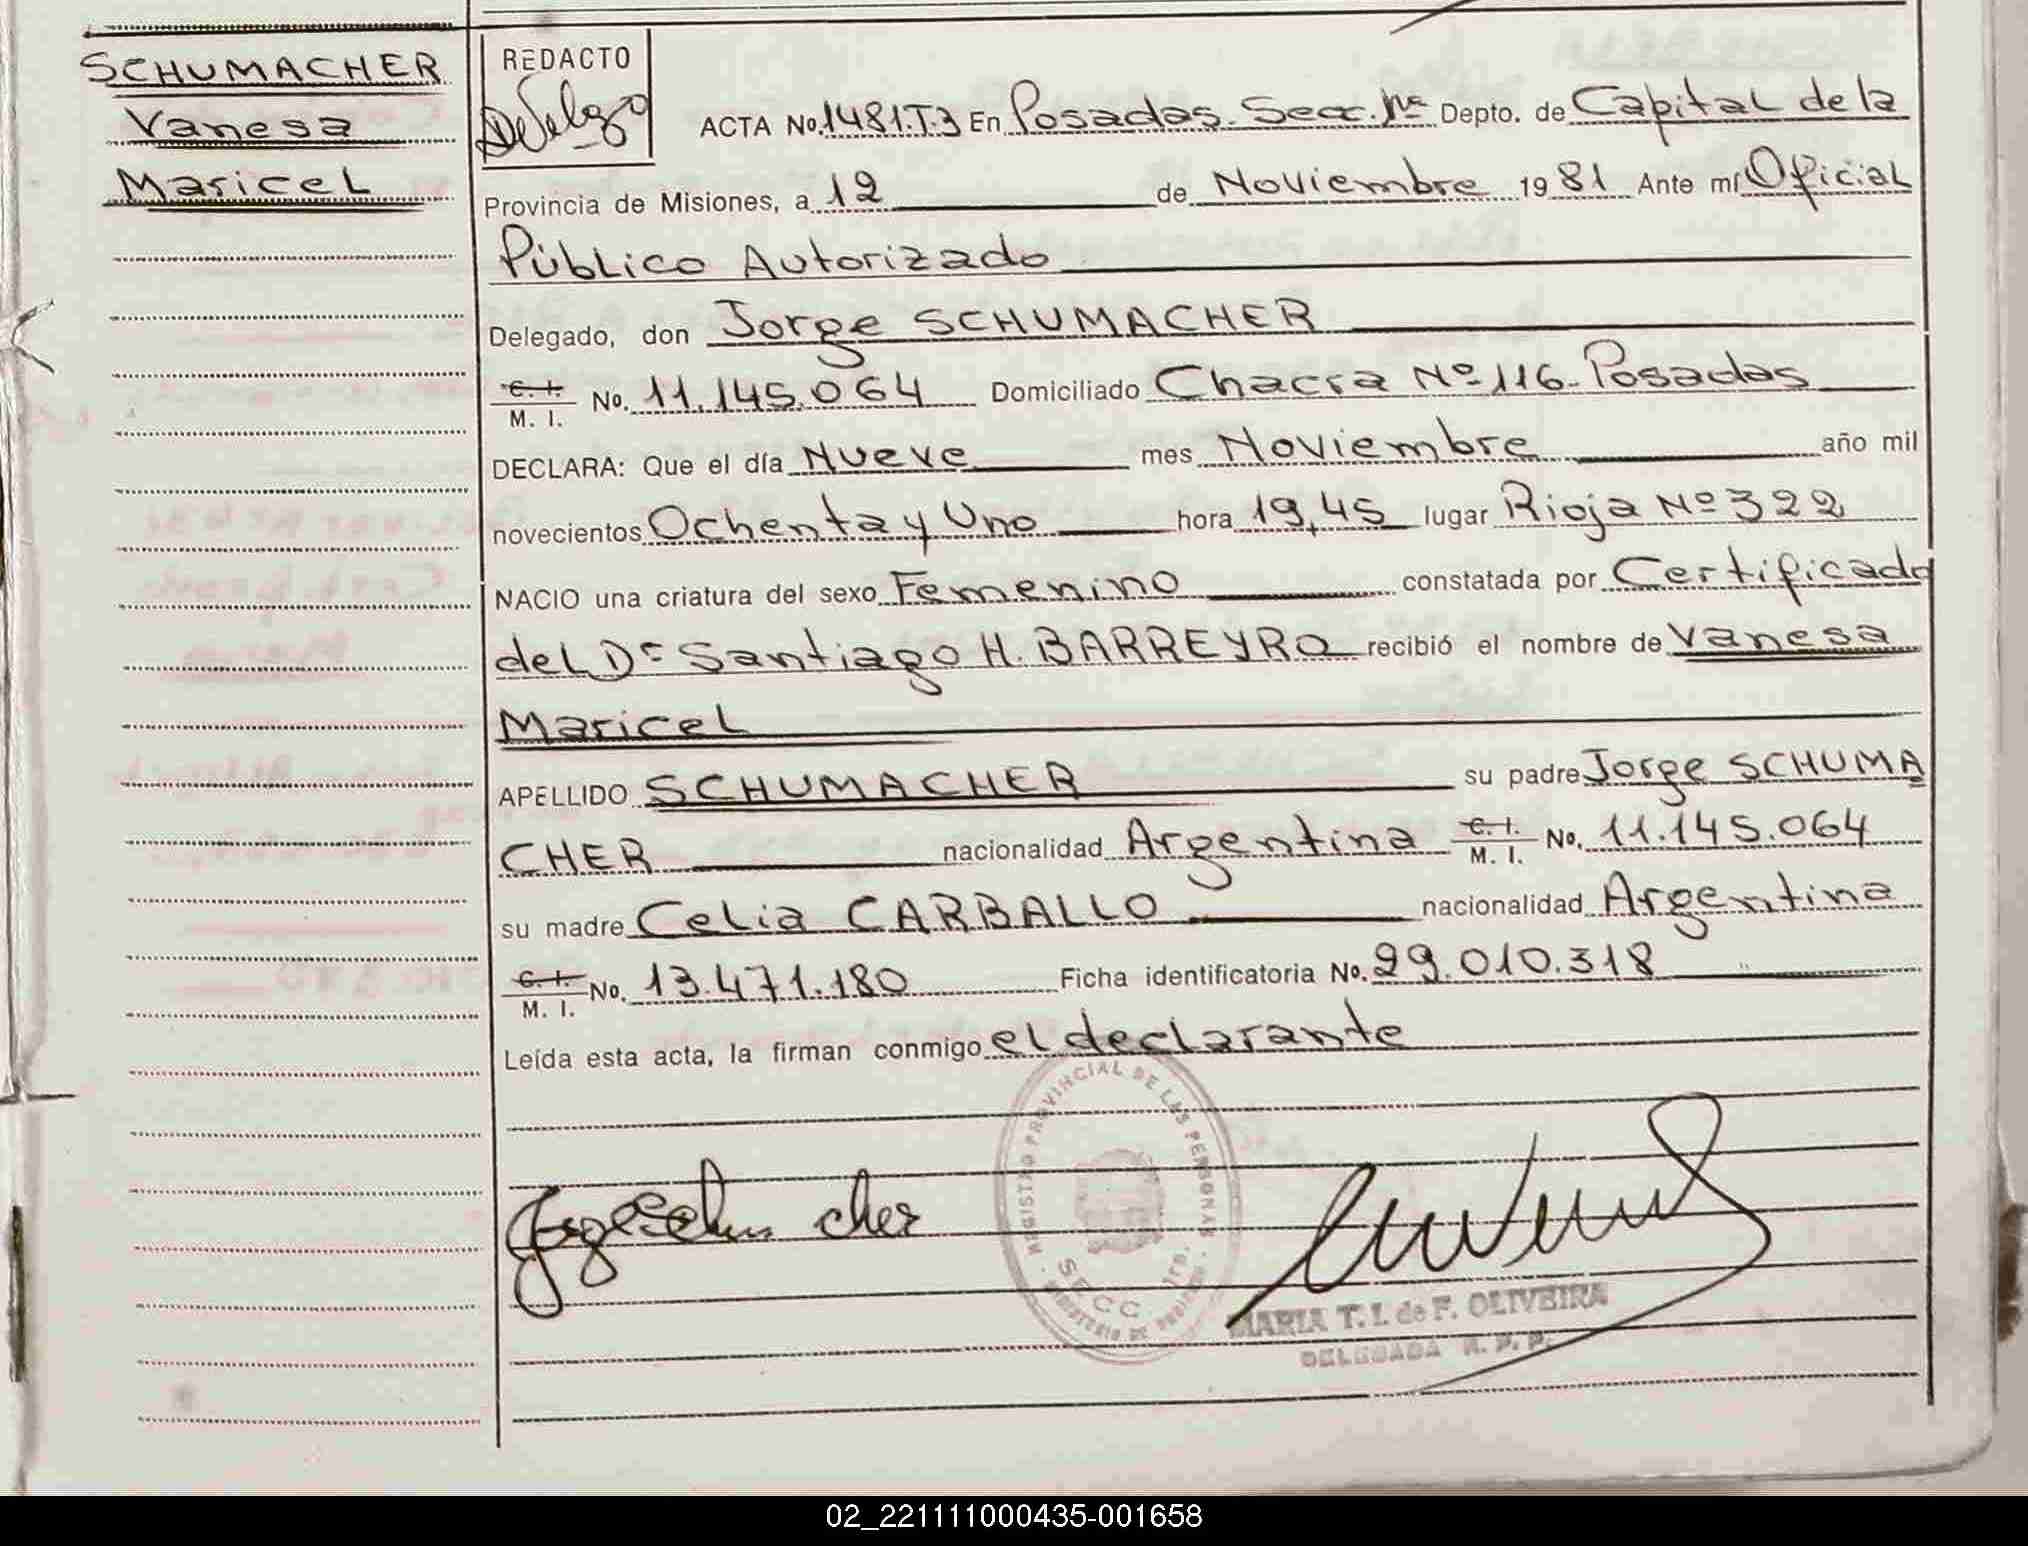 SCHUMACHER
Vanesa
Maricel
REDACTO
ACTA No. 1481.T.3 En Posadas. Secc. 1ra Depto. de Capital de la
Provincia de Misiones, a 12 de Noviembre 1981 Ante mí Oficial
Público Autorizado
Delegado, don Jorge SCHUMACHER
C. I.
M. I. No. 11.145.064 Domiciliado Chacra Nº 116- Posadas
DECLARA: Que el día Nueve mes Noviembre año mil
novecientos Ochenta y Uno hora 19,45 lugar Rioja Nº 322
NACIO una criatura del sexo Femenino constatada por Certificado
del Dr Santiago H. BARREYRO recibió el nombre de Vanesa
Maricel
APELLIDO SCHUMACHER su padre Jorge SCHUMA
CHER nacionalidad Argentina C. I. M. I. No. 11.145.064
su madre Celia CARBALLO nacionalidad Argentina
C. I.
M. I. No. 13.471.180 Ficha identificatoria No. 29.010.318
Leída esta acta, la firman conmigo el declarante
REGISTRO PROVINCIAL DE LAS PERSONAS
SECC. 1ra.
Jorge Schumacher
MARIA T. I. de F. OLIVEIRA
DELEGADA R. P. P.
02_221111000435-001658